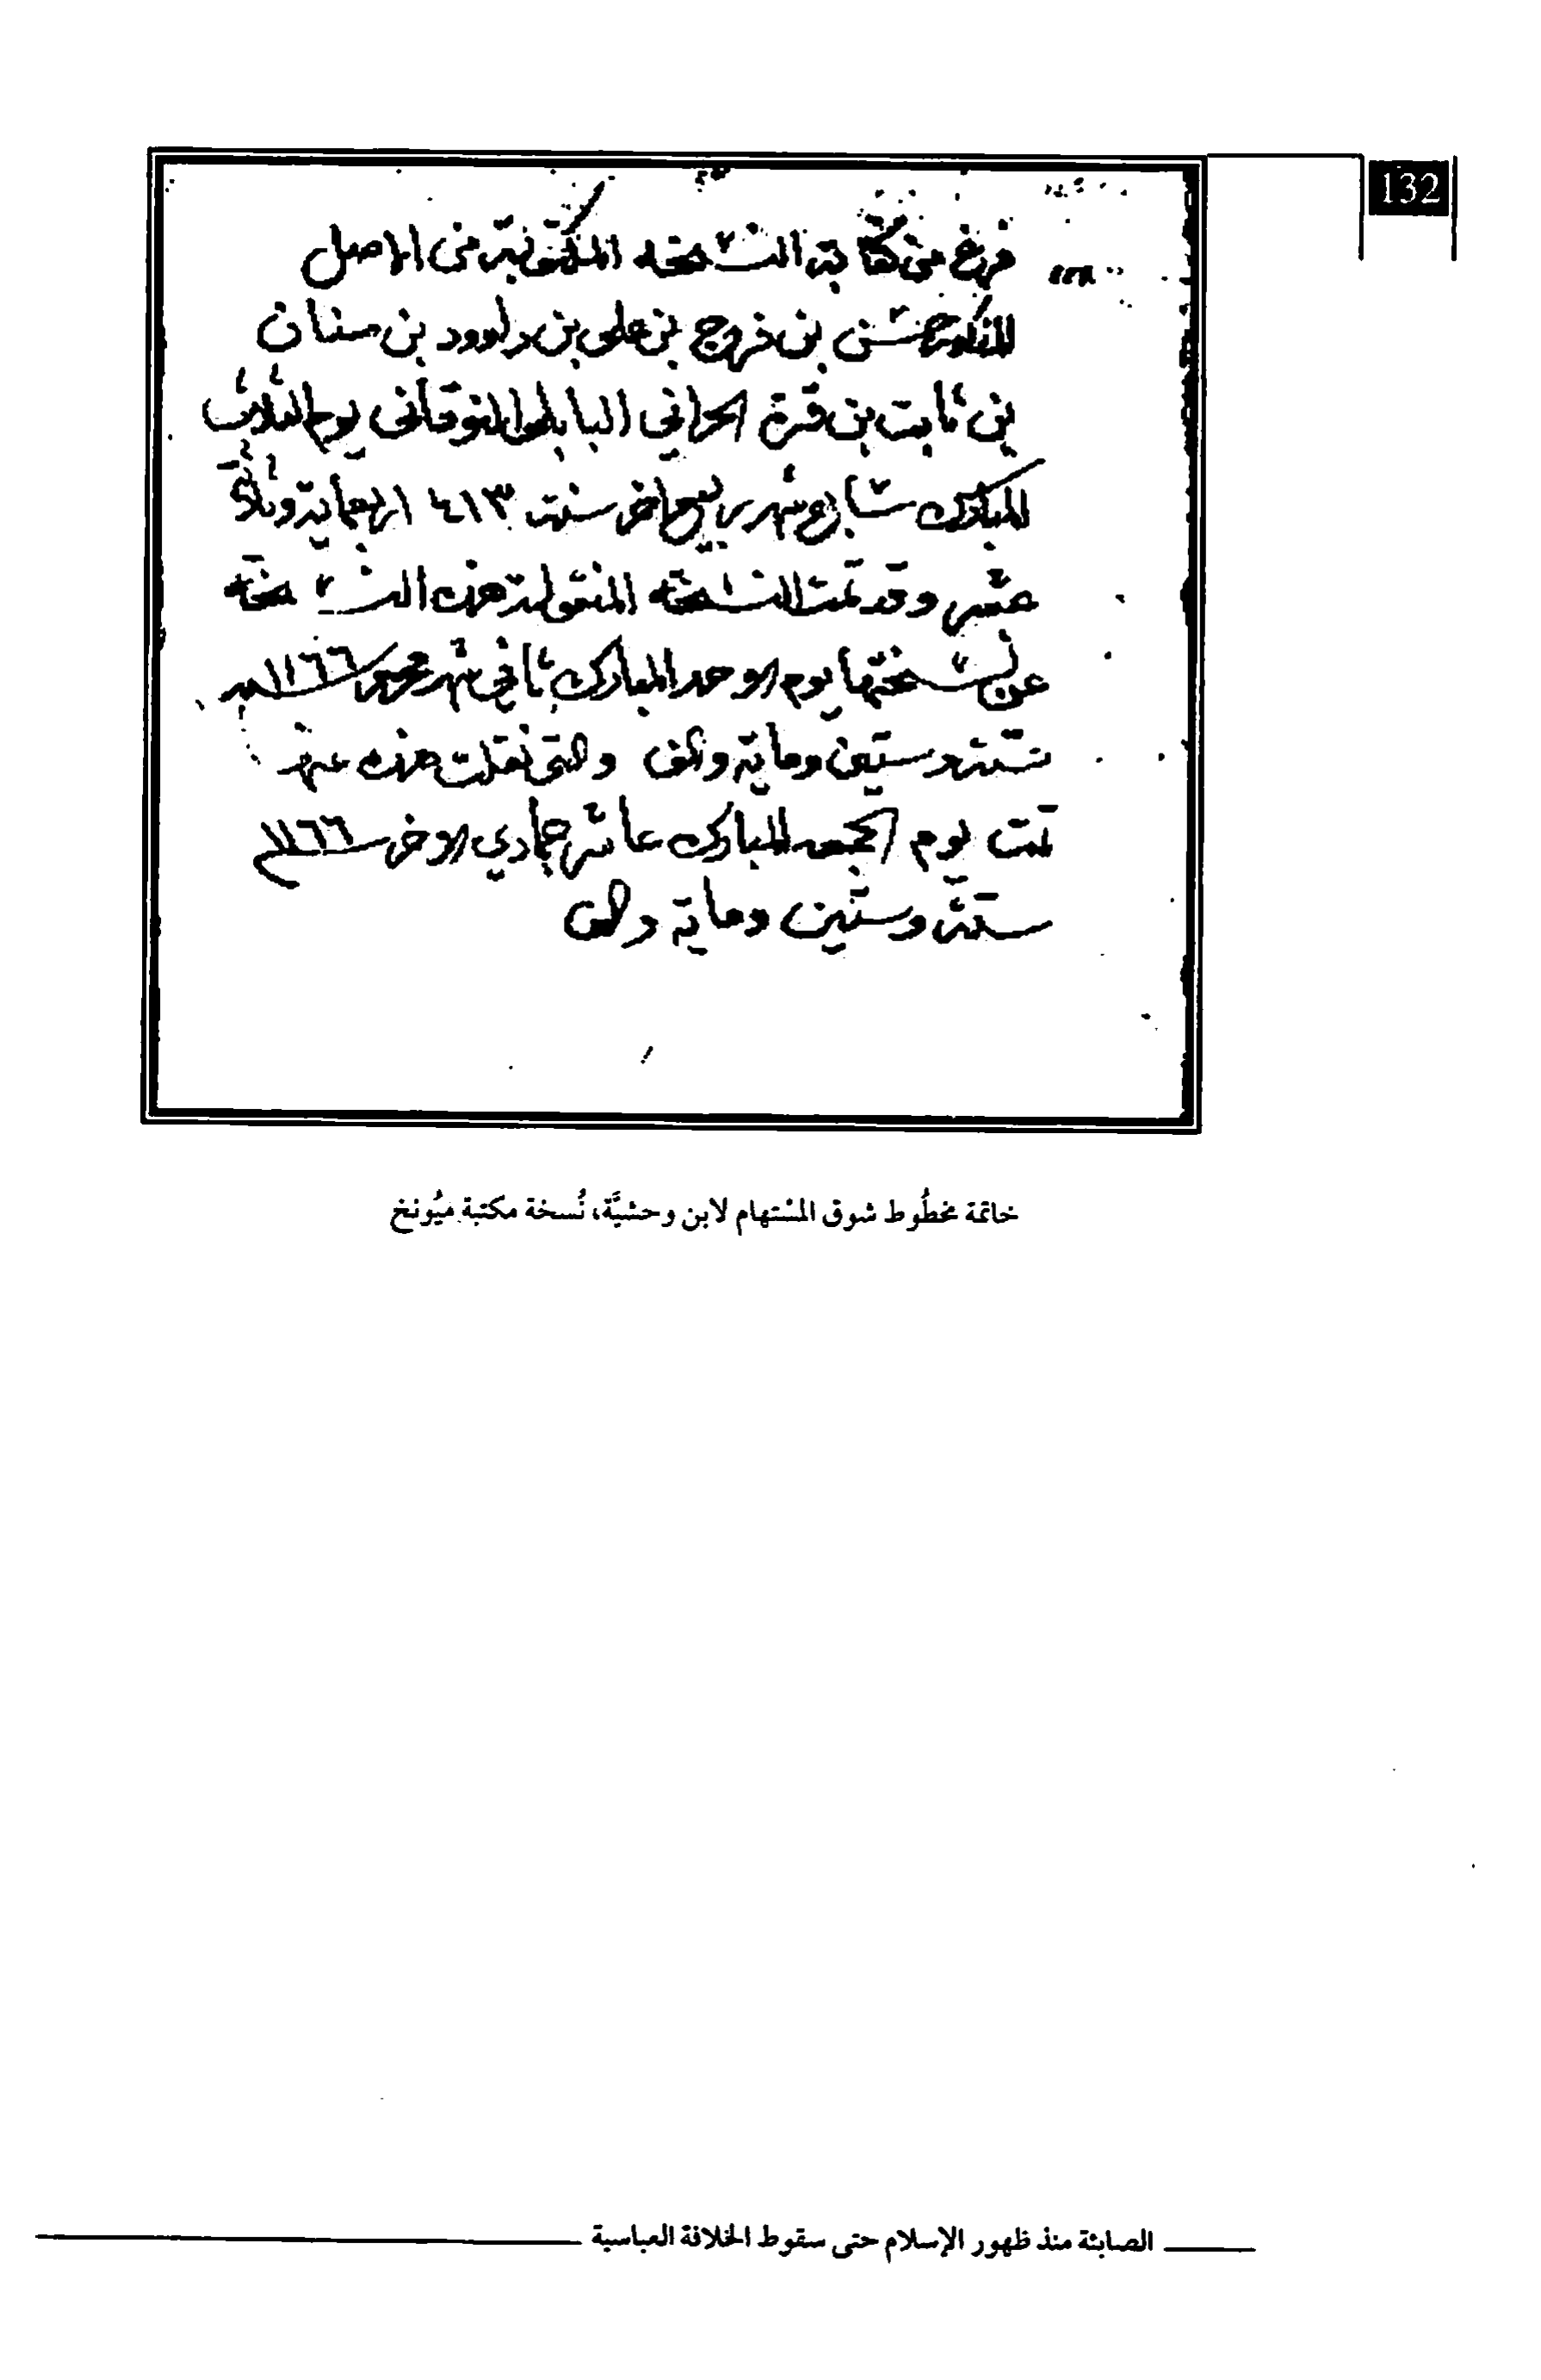 132
فرغ من كتابة النسخه المكتوبة من الاصل
حسن بن فرج بن علي بن داوود بن سنان
بن ثابت بن قرة الحراني البابلي النوقاني يوم الثلاث
المبارك سابع شهر ربيع اخر سنة ٤١٣ اربعماية وثلاثة
عشر وقد تمت النسخه المنقولة هذه النسخه
عن نسختها يوم الاحد المبارك ثاني شهر محرم ١١٦٦
ستة وستين وماية والف والتي نقلت هذه عنها
تمت يوم الجمعه المبارك عاشر جمادي الاخر ١١٦٦
ستة وستين وماية والف
خاتمة مخطُوط شوق المسْتهام لابن وحشيَّة، نُسخة مكتبة ميُونخ
الصابئة منذ ظهور الإسلام حتى سقوط الخلافة العباسية